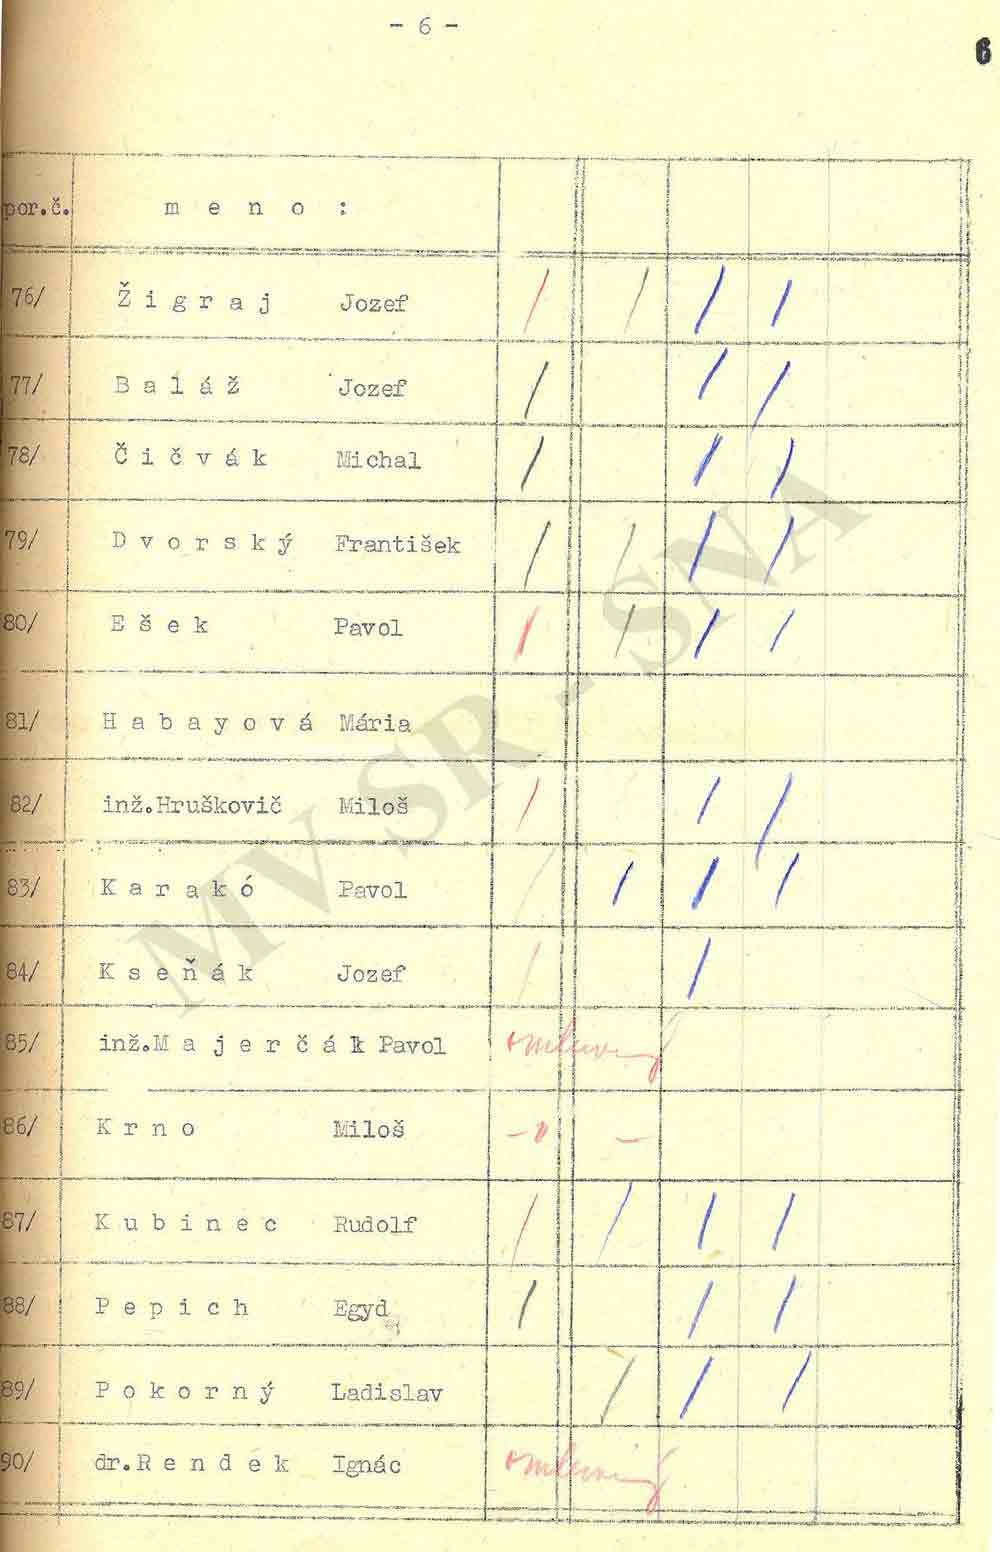 - 6 -
6
por.č. m e n o :
76/ Ž i g r a j Jozef / / / /
77/ B a l á ž Jozef / / /
78/ Č i č v á k Michal / / /
79/ D v o r s k ý František / / / /
80/ E š e k Pavol / / / /
81/ H a b a y o v á Mária
82/ inž.Hruškovič Miloš / / /
83/ K a r a k ó Pavol / / / /
84/ K s e ň á k Jozef / /
85/ inž.M a j e r č á k Pavol omluvený
86/ K r n o Miloš
87/ K u b i n e c Rudolf / / / /
88/ P e p i c h Egyd / / /
89/ P o k o r n ý Ladislav / / /
90/ dr.R e n d e k Ignác omluvený
MV SR - SNA